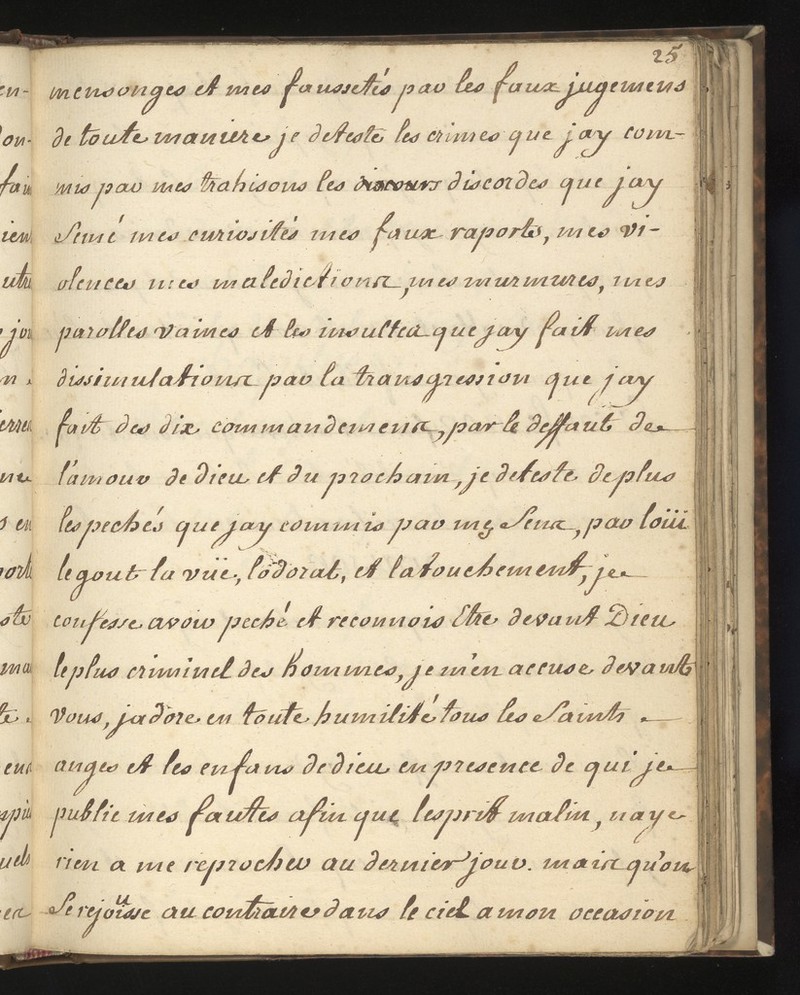 25
mensonges et mes faussetés par les faux jugemens
de toute maniere je deteste les crimes que jay com-
mis par mes trahisons les discours discordes que jay
Semé mes curiosités mes faux raports, mes vi-
olences mes maledictions, mes murmures, mes
parolles vaines et les insultes que jay fait mes
dissimulations par la transgression que jay
fait des dix commandemens, par le deffaut de
l'amour de Dieu et du prochain, je deteste de plus
les pechés que jay commis par mes Sens, par loüi
le gout la vüe, lodorat, et latouchement, je
confesse avoir peché et reconnois Etre devant Dieu
le plus criminel des hommes, je m'en accuse devant
vous, jadore en toute humilité tous les Saints
anges et les enfans de dieu en presence de qui je
publie mes fautes afin que lesprit malin, naye
rien a me reprocher au dernier jour. mais qu'on
Se rejouisse au contraire dans le ciel a mon occasion
en-
fai
ien
utre
jou
n.
ne
s en
port
ste
ma
te.
ens
uels